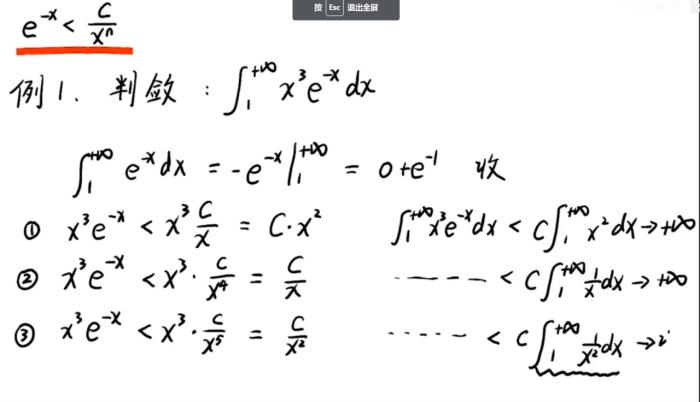 按 Esc 退出全屏
e^{-x} < \frac{C}{x^n}
例1. 判敛: \int_1^{+\infty} x^3 e^{-x} dx
\int_1^{+\infty} e^{-x} dx = -e^{-x} |_1^{+\infty} = 0 + e^{-1} 收
① x^3 e^{-x} < x^3 \frac{C}{x} = C·x^2 \int_1^{+\infty} x^3 e^{-x} dx < C \int_1^{+\infty} x^2 dx → +∞
② x^3 e^{-x} < x^3 · \frac{C}{x^4} = \frac{C}{x} ------ < C \int_1^{+\infty} \frac{1}{x} dx → +∞
③ x^3 e^{-x} < x^3 · \frac{C}{x^5} = \frac{C}{x^2} ------ < C \int_1^{+\infty} \frac{1}{x^2} dx →